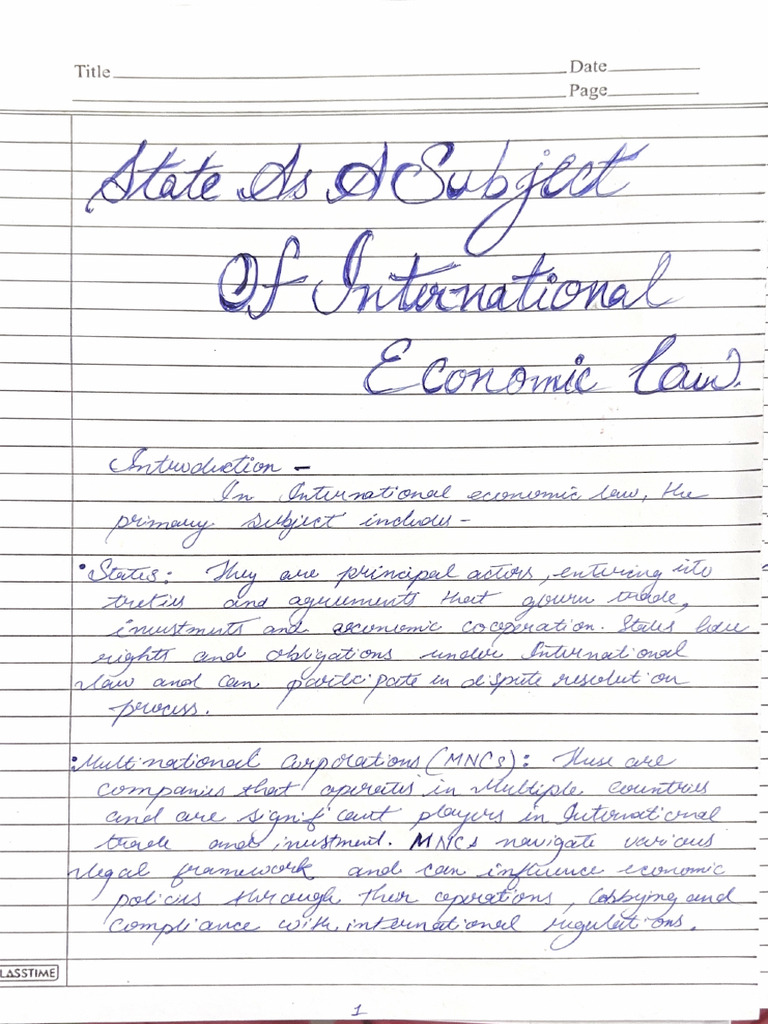 Title
Date
Page
State As A Subject
Of International
Economic law.
Introduction -
In International economic law, the
primary subject includes -
• States: They are principal actors, entering into
treties and agreements that govern trade,
investments and economic cooperation. States have
rights and obligations under International
law and can participate in dispute resolution
process.
• Multinational Corporations (MNCs): These are
companies that operates in Multiple countries
and are significant players in International
trade and investment. MNCs navigate various
legal framework and can influence economic
policies through their operations, lobbying and
compliance with international regulations.
LASSTIME
1